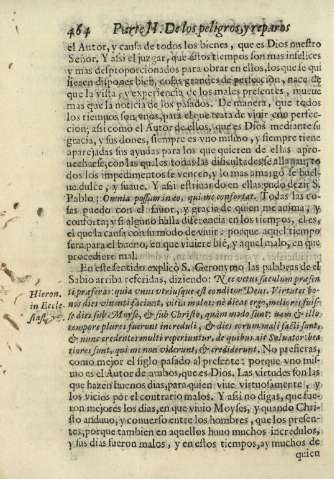 464 Parte II. De los peligros, y reparos
el Autor, y causa de todos los bienes, que es Dios nuestro
Señor. Y assi el juzgar, que estos tiempos son mas infelices
y mas desproporcionados para obrar en ellos, los que se qui
sieren disponer bien, cosas grandes de perfeccion, nace de
que la vista, y experiencia de los males presentes, mueue
mas que la noticia de los passados. De manera, que todos
los tiempos son vnos, para el que trata de viuir con perfec-
cion; assi como el Autor de ellos, que es Dios mediante su
gracia, y sus dones, siempre es vno mismo, y siempre tiene
aparejadas sus ayudas para los que quieren de ellas apro-
uecharse, con las quales todas las dificultades se allanan, to
dos los impedimentos se vencen, y lo mas amargo se buel-
ue dulce, y suaue. Y assi estriuando en ellas pudo dezir S.
Pablo: Omnia possum in eo, qui me confortat. Todas las co-
sas puedo con el fauor, y gracia de quien me anima, y
conforta; y si alguno halla diferencia en los tiempos, el es,
el que la causa con su modo de viuir: porque aquel tiempo
sera para el bueno, en que viuiere bie, y aquel malo, en que
procediere mal.
En este sentido explicò S. Geronymo las palabras de el
Sabio arriba referidas, diziendo: Ne vetus sæculum præsen
ti præferas: quia vnus vtriusque est conditor Deus. Virtutes bo-
nos dies viuenti faciunt, vitia malos: nè dicas ergo, meliores fuis-
se dies sub Moyse, & sub Christo, quàm modo sunt: nam & illo
tempore plures fuerunt increduli, & dies eorum mali facti sunt,
& nunc credentes multi reperiuntur, de quibus ait Saluator: bea
tiores sunt, qui me non viderunt, & crediderunt. No prefieras,
como mejor el siglo passado al presente: porque vno mis-
mo es el Autor de ambos, que es Dios. Las virtudes son las
que hazen buenos dias, para quien viue virtuosamente, y
los vicios por el contrario malos. Y assi no digas, que fue-
ron mejores los dias, en que viuio Moyses, y quando Chris-
to anduuo, y conuerso entre los hombres, que los presen-
tes, porque tambien en aquellos huuo muchos incredulos,
y sus dias fueron malos, y en estos tiempos, ay muchos de
quien
Hieron.
in Eccle-